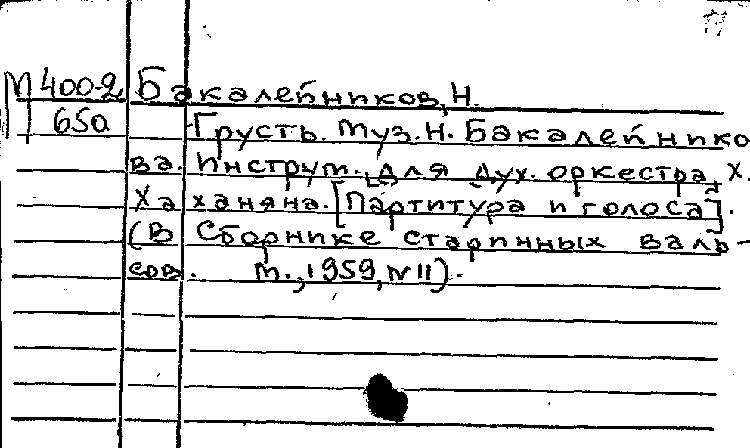 М 400-2 Бакалейников, Н.
650 Грусть. Муз. Н. Бакалейнико
ва. Инструм. для дух. оркестра Х.
Хаханяна. [Партитура и голоса].
(В Сборнике старинных валь-
сов. М., 1959, №11).